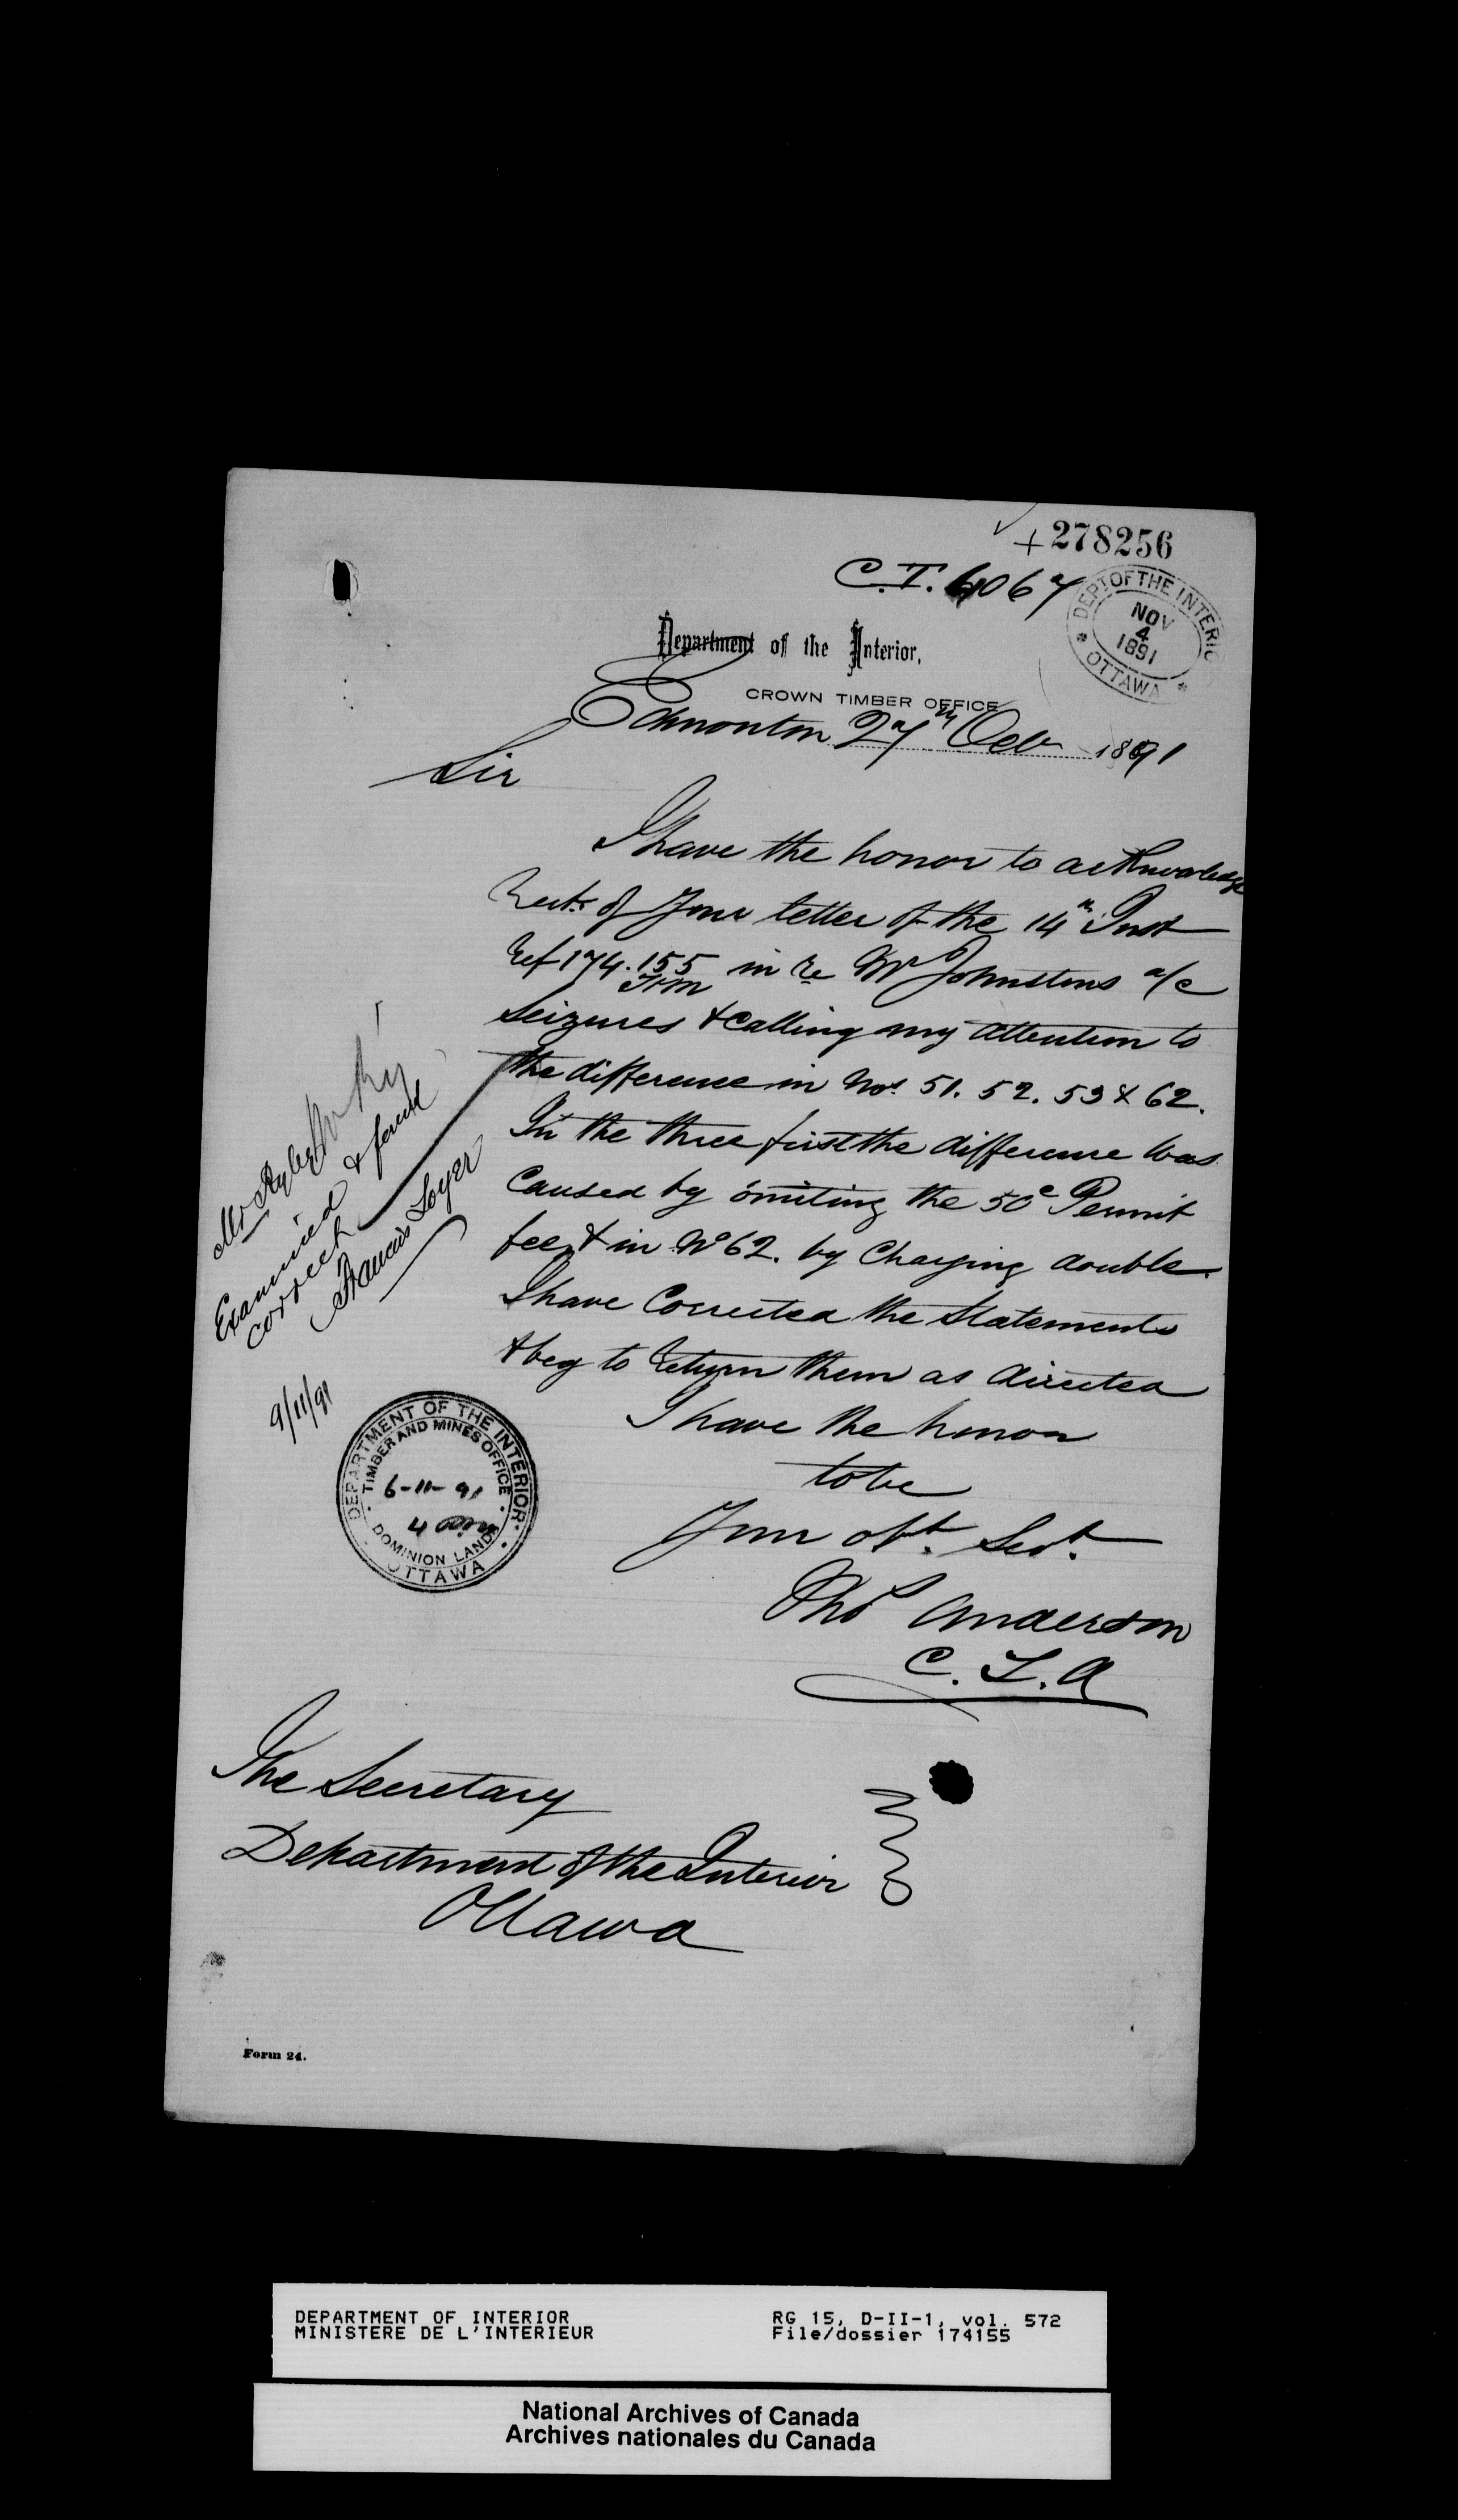 +278256
C.T. 4067
DEPT OF THE INTERIOR
NOV
4
1891
* OTTAWA *
Department of the Interior,
CROWN TIMBER OFFICE
Edmonton 27th Oct 1891
Sir
I have the honor to acknowledge
Rect. of your letter of the 14th Inst
Ref 174.155 in re Mr Johnstons a/c
T&M
Seizures & Calling my attention to
the difference in Nos. 51. 52. 53 & 62.
In the three first the difference was
Caused by omiting the 50c Permit
fee, & in No 62. by Charging double.
I have Corrected the Statements
& beg to Return them as directed
I have the honor
to be
Your obt. Servt.
Thos Anderson
C. T. A
Mr Ryley
Examined & found
correct
Francis Loyer
9/11/91
DEPARTMENT OF THE INTERIOR
TIMBER AND MINES OFFICE
6-11-91
4
DOMINION LANDS
OTTAWA
The Secretary
Department of the Interior
Ottawa
Form 24.
DEPARTMENT OF INTERIOR RG 15, D-II-1, vol. 572
MINISTERE DE L'INTERIEUR File/dossier 174155
National Archives of Canada
Archives nationales du Canada